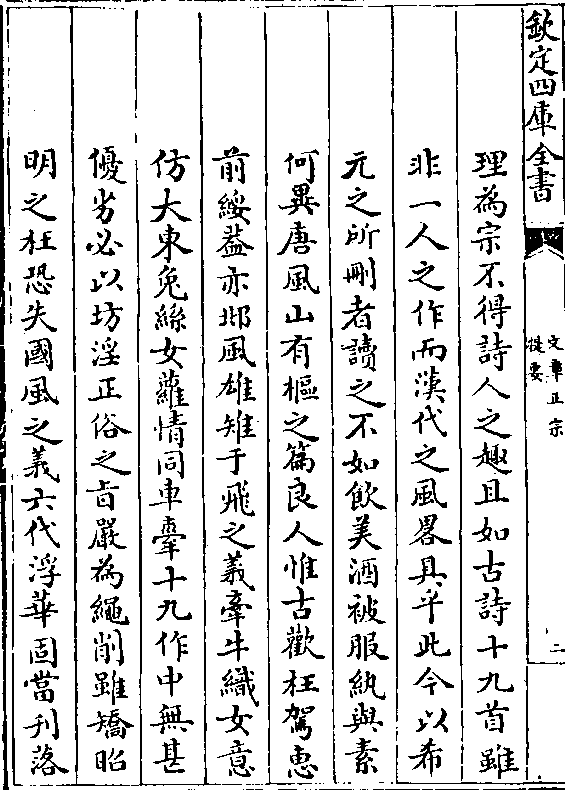 欽定四庫全書
文章正宗
提要
二
理為宗不得詩人之趣且如古詩十九首雖
非一人之作而漢代之風畧具乎此今以希
元之所刪者讀之不如飲美酒被服紈與素
何異唐風山有樞之篇良人惟古歡枉駕惠
前綏葢亦邶風雄雉于飛之義牽牛織女意
仿大東兔絲女蘿情同車舝十九作中無甚
優劣必以坊淫正俗之旨嚴為繩削雖矯昭
明之枉恐失國風之義六代浮華固當刋落